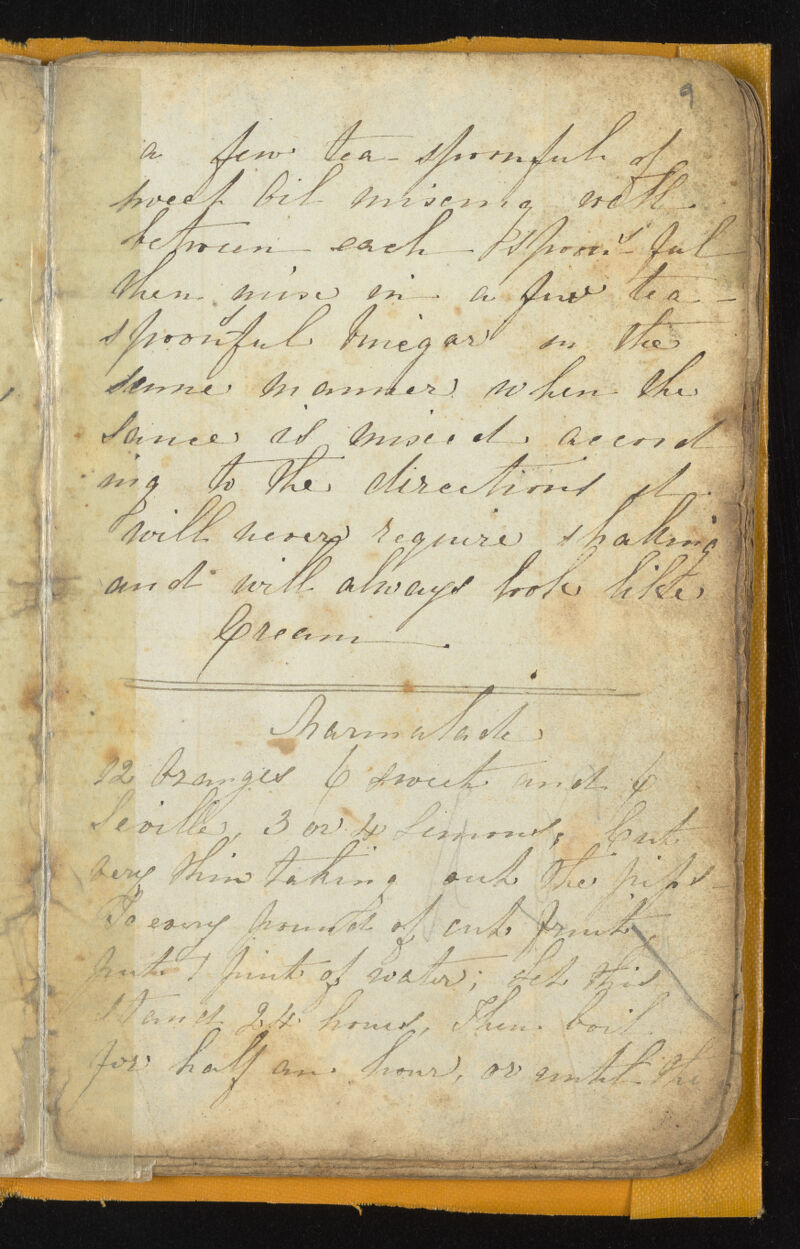 9
a few tea-spoonfuls of
sweet Oil mixing well
between each spoonsful
then mix in a few tea-
spoonsful Vinegar in the
same manner when the
sauce is mixed accord
ing to the directions it
will never require shaking
and will always look like
Cream
Marmalade
12 Oranges 6 sweet and 6
Seville, 3 or 4 Lemons; Cut
very thin taking out the pips-
To every pound of cut fruit,
put 1 pint of water; let this
stand 24 hours, Then boil
for half an hour, or until the